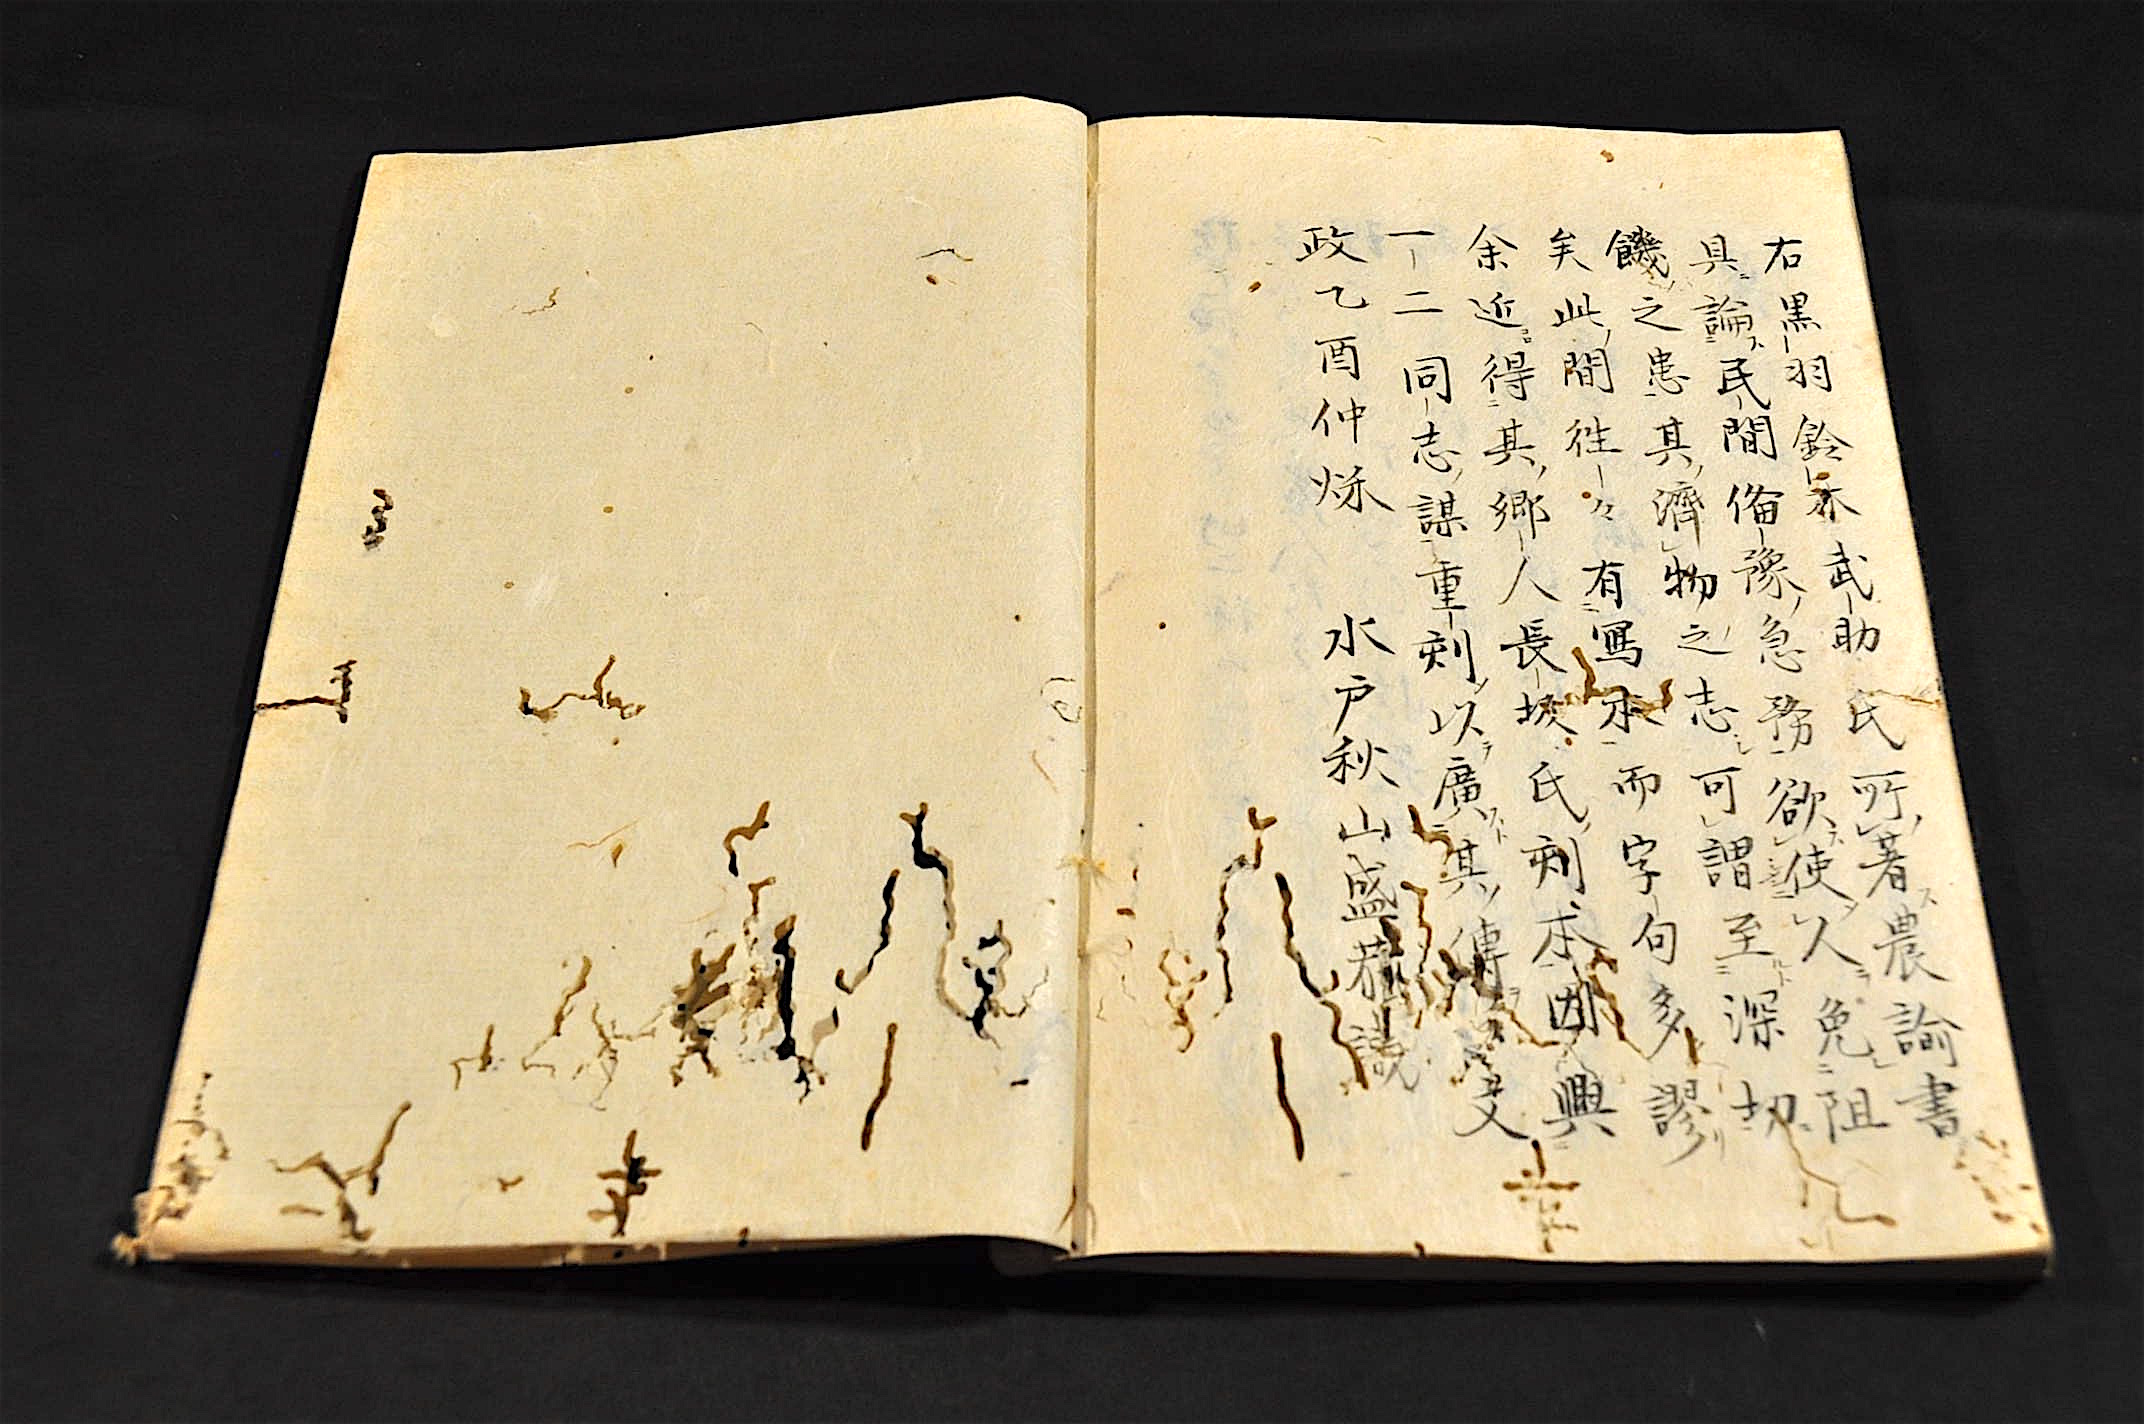 右黒羽鈴木武助氏所著農諭書
具論民間備豫急務欲使人免阻
饑之患其濟物之志可謂至深切
矣此間往々有寫本而字句多謬
余近得其郷人長坂氏刻本因與
一二同志謀重刻以廣其傳文
政乙酉仲秌　水戸秋山盛恭識